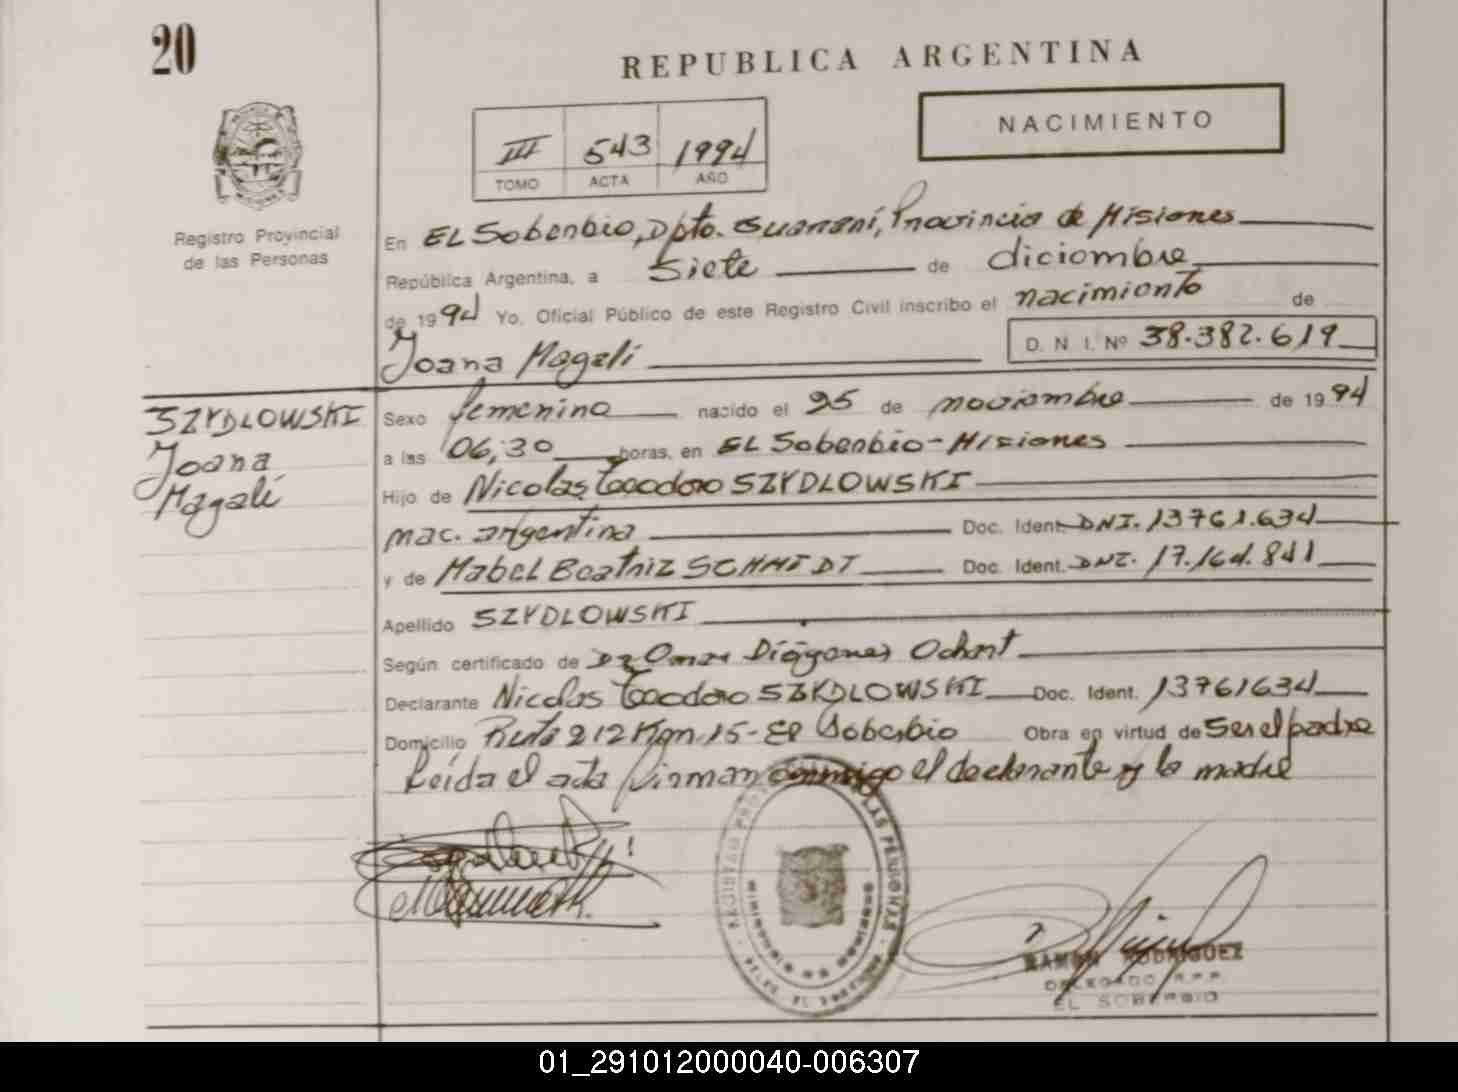 20
REPUBLICA ARGENTINA
NACIMIENTO
III 543 1994
TOMO ACTA AÑO
Registro Provincial
de las Personas
En EL Soberbio, Dpto. Guaraní, Provincia de Misiones
República Argentina, a Siete de diciembre
de 1994 Yo, Oficial Público de este Registro Civil inscribo el nacimiento de
Joana Magalí
D. N. I. Nº 38.382.619
SZYDLOWSKI
Joana
Magalí
Sexo femenino nacido el 25 de noviembre de 1994
a las 06,30 horas, en EL Soberbio-Misiones
Hijo de Nicolas Teodoro SZYDLOWSKI
nac. argentina Doc. Ident. DNI. 13761.634
y de Mabel Beatriz SCHMIDT Doc. Ident. DNI. 17.164.841
Apellido SZYDLOWSKI
Según certificado de Dr Omar Diógenes
Declarante Nicolas Teodoro SZYDLOWSKI Doc. Ident. 13761634
Domicilio Ruta 212 Km 15- El Soberbio Obra en virtud de Ser el padre
Leída el acta firman conmigo el declarante y la madre
RAMON RODRIGUEZ
DELEGADO R.P.P.
EL SOBERBIO
01_291012000040-006307